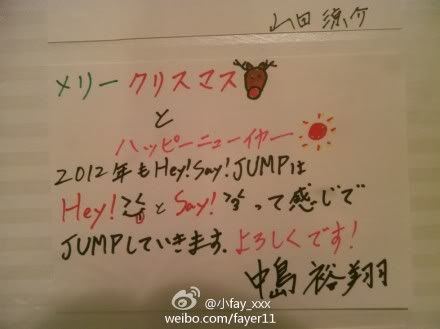 山田涼介
メリークリスマス
と
ハッピーニューイヤー
2012年もHey!Say!JUMPは
Hey! とSay! って感じで
JUMPしていきます。よろしくです!
中島裕翔
@小fay_xxx
weibo.com/fayer11